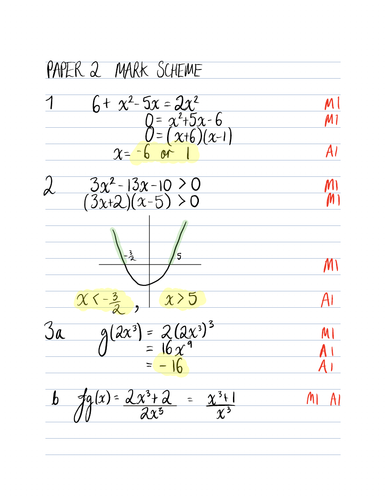 PAPER 2 MARK SCHEME
1 6 + x² - 5x = 2x² M1
0 = x² + 5x - 6 M1
0 = (x+6)(x-1)
x = -6 or 1 A1
2 3x² - 13x - 10 > 0 M1
(3x+2)(x-5) > 0 M1
-3/2 5
M1
x < -3/2 , x > 5 A1
3a g(2x³) = 2(2x³)³ M1
= 16x⁹ A1
= -16 A1
b fg(x) = 2x³+2/2x³ = x³+1/x³ M1 A1